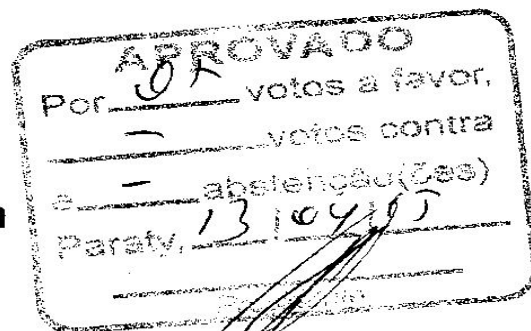 APROVADO
Por votos a favor,
- votos contra
e - abstenção(ções)
Paraty, 13 / 04 /